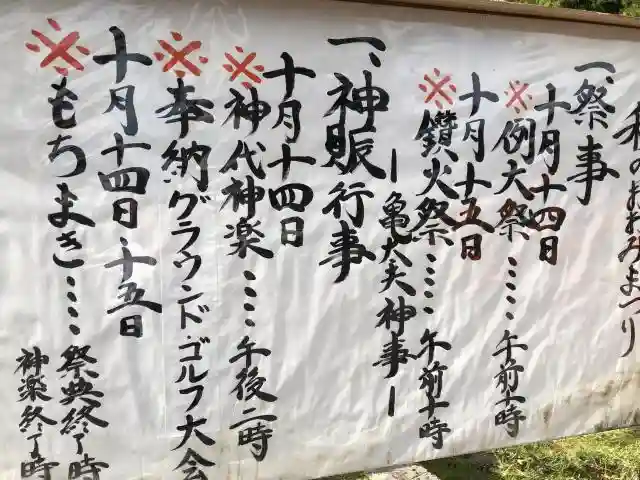 秋のおおみまつり
一、祭事
十月十四日
※例大祭……午前十時
十月十五日
※鑚火祭……午前十時
ー亀太夫神事ー
一、神賑行事
十月十四日
※神代神楽……午後二時
※奉納グラウンド・ゴルフ大会
十月十四日・十五日
※もちまき……祭典終了時
神楽終了時